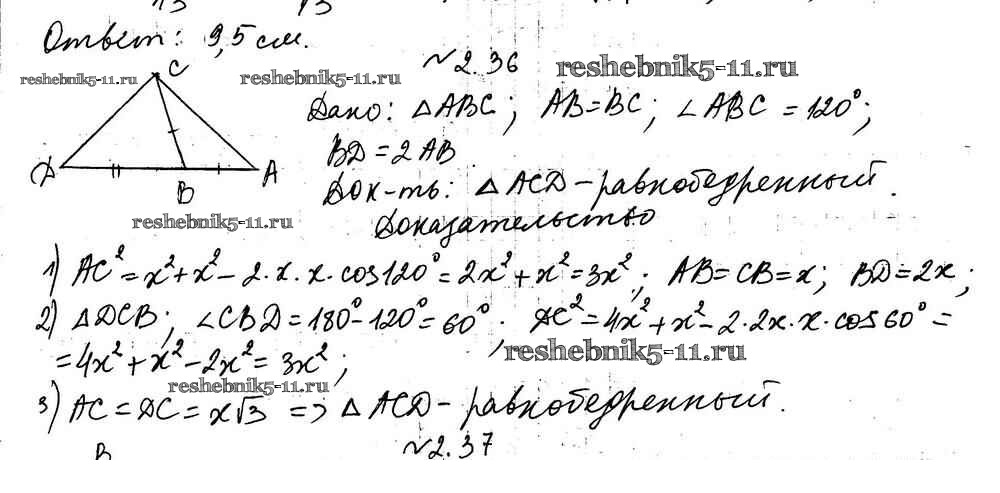 Ответ: 9,5 см.
№2.36
reshebnik5-11.ru reshebnik5-11.ru reshebnik5-11.ru
C
Дано: △ABC; AB=BC; ∠ABC=120°;
BD=2AB
D B A
Док-ть: △ACD-равнобедренный.
reshebnik5-11.ru
Доказательство
1) AC²=x²+x²-2·x·x·cos120°=2x²+x²=3x²; AB=CB=x; BD=2x;
2) △DCB; ∠CBD=180°-120°=60°; DC²=4x²+x²-2·2x·x·cos60°=
=4x²+x²-2x²=3x²;
reshebnik5-11.ru
reshebnik5-11.ru
3) AC=DC=x√3 => △ACD-равнобедренный.
№2.37
B